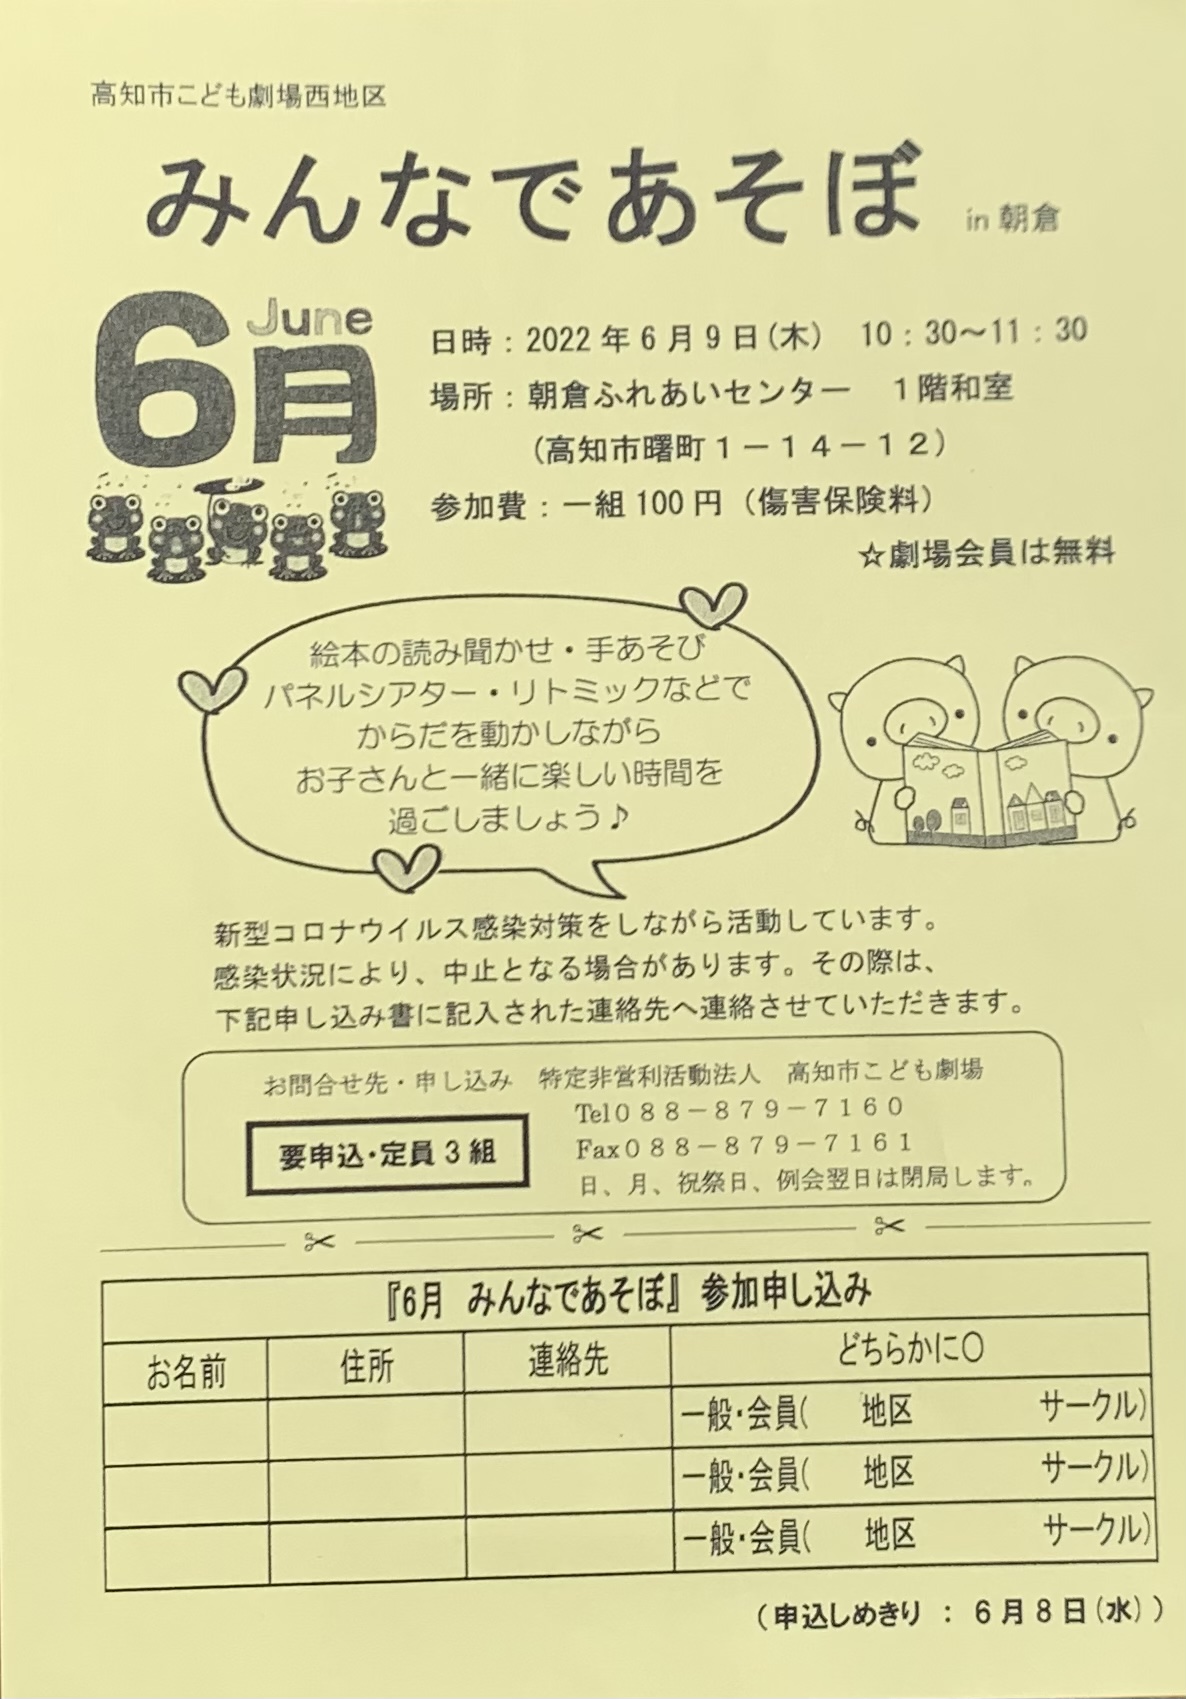 高知市こども劇場西地区
みんなであそぼ in 朝倉
June
6月
日時：2022年6月9日(木)　10：30～11：30
場所：朝倉ふれあいセンター　１階和室
（高知市曙町１－１４－１２）
参加費：一組100円（傷害保険料）
☆劇場会員は無料
絵本の読み聞かせ・手あそび
パネルシアター・リトミックなどで
からだを動かしながら
お子さんと一緒に楽しい時間を
過ごしましょう♪
新型コロナウイルス感染対策をしながら活動しています。
感染状況により、中止となる場合があります。その際は、
下記申し込み書に記入された連絡先へ連絡させていただきます。
お問合せ先・申し込み　特定非営利活動法人　高知市こども劇場
Tel０８８－８７９－７１６０
Fax０８８－８７９－７１６１
要申込・定員３組
日、月、祝祭日、例会翌日は閉局します。
『6月　みんなであそぼ』参加申し込み
お名前　住所　連絡先　どちらかに○
一般・会員(　　地区　　　　サークル)
一般・会員(　　地区　　　　サークル)
一般・会員(　　地区　　　　サークル)
（申込しめきり ： 6月8日(水)）